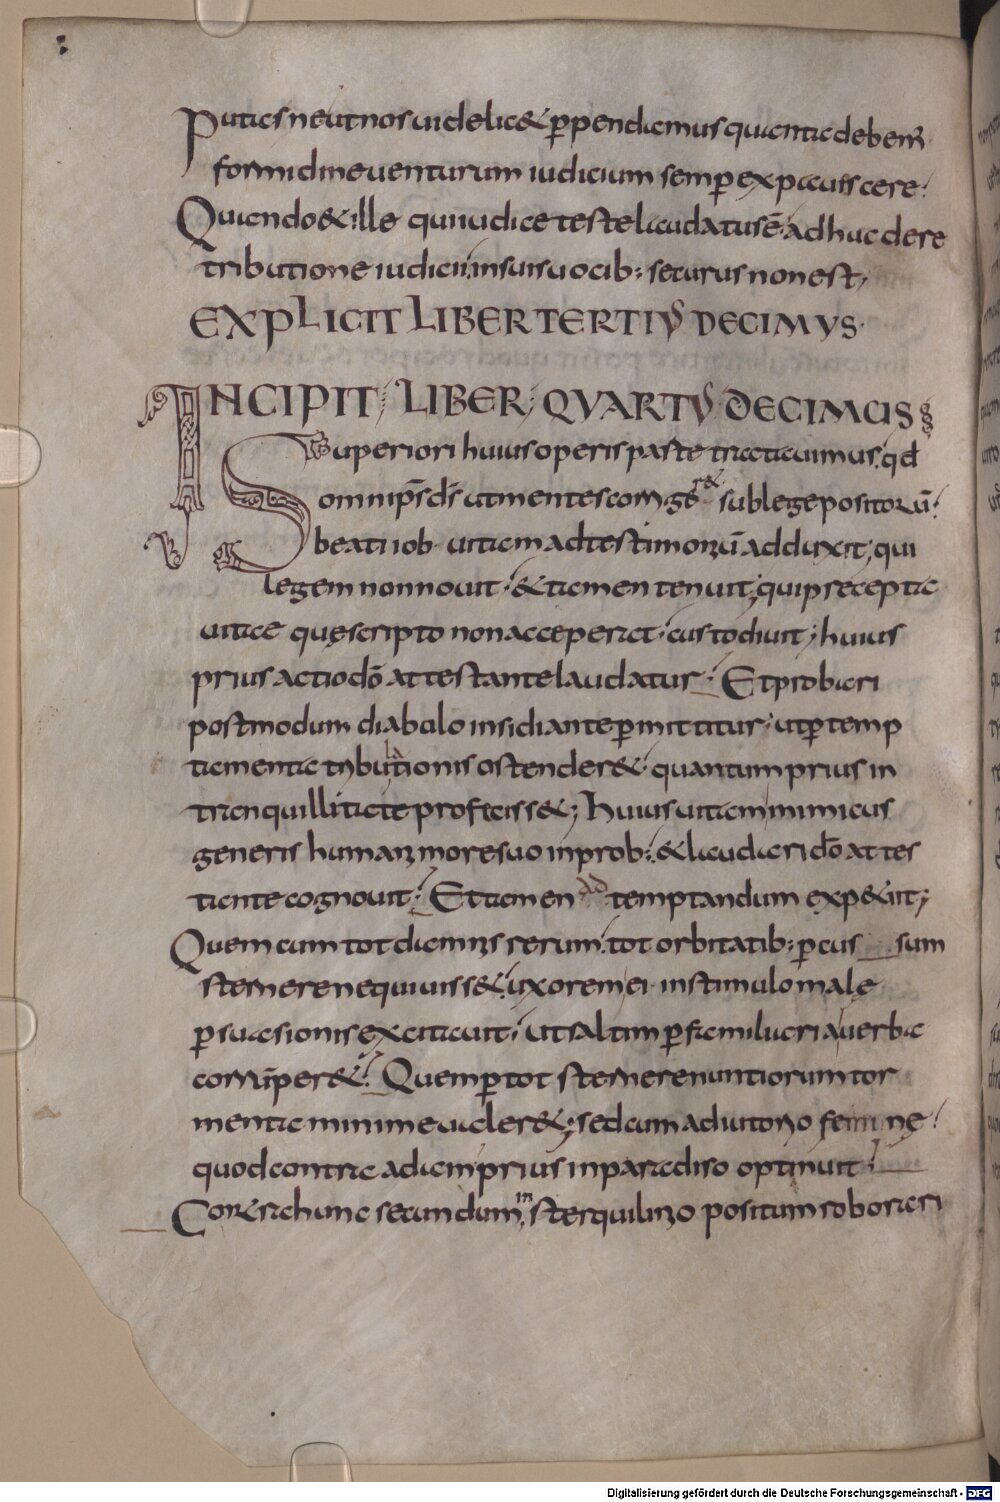 Putas ne ut nos uidelic& p̱pendamus quanta debem̄
formidine uenturum iudicium semp̱ expauescere!
Quando & ille qui iudice teste laudatus ē adhuc de re
tributione iudicii, in suis uocib: securus non est,
EXPLICIT LIBER TERTIVS DECIMVS·
INCIPIT; LIBER; QVARTVS DECIMUS
Superiori huius operis parte tractauimus, qđ
omnip̄s d̄s ut mentes corrigeret sub lege positorū!
beati iob· uitam ad testimoniū adduxit; qui
legem non nouit· & tamen tenuit; qui precepta
uitae quę scripto non acceperat· custodiuit; huius
prius actio dō attestante laudatur· Et probari
postmodum diabulo insidiante p̱mittitur· ut p̱ temp
tamenta tribulationis ostender&· quantum prius in
tranquillitate profeciss&; Huius uitam inimicus
generis humani more suo inprob:· & laudari dō attes
tante cognouit! Et tamen ad temptandum exp&iit;
Quem cum tot damnis rerum· tot orbitatib: p̱cussum
sternere nequiuiss& uxorem ei in stimulo malę
p̱suasionis excitauit, ut saltim p̱ familiari a uerba
corrūper&! Quem p̱ tot sternere nuntiorum tor
menta minime ualer&; sed cum adiutorio feminę!
quod contra adam prius in paradiso optinuit!
Contra hunc secundum in sterquilinio positum roborari
Digitalisierung gefördert durch die Deutsche Forschungsgemeinschaft - DFG